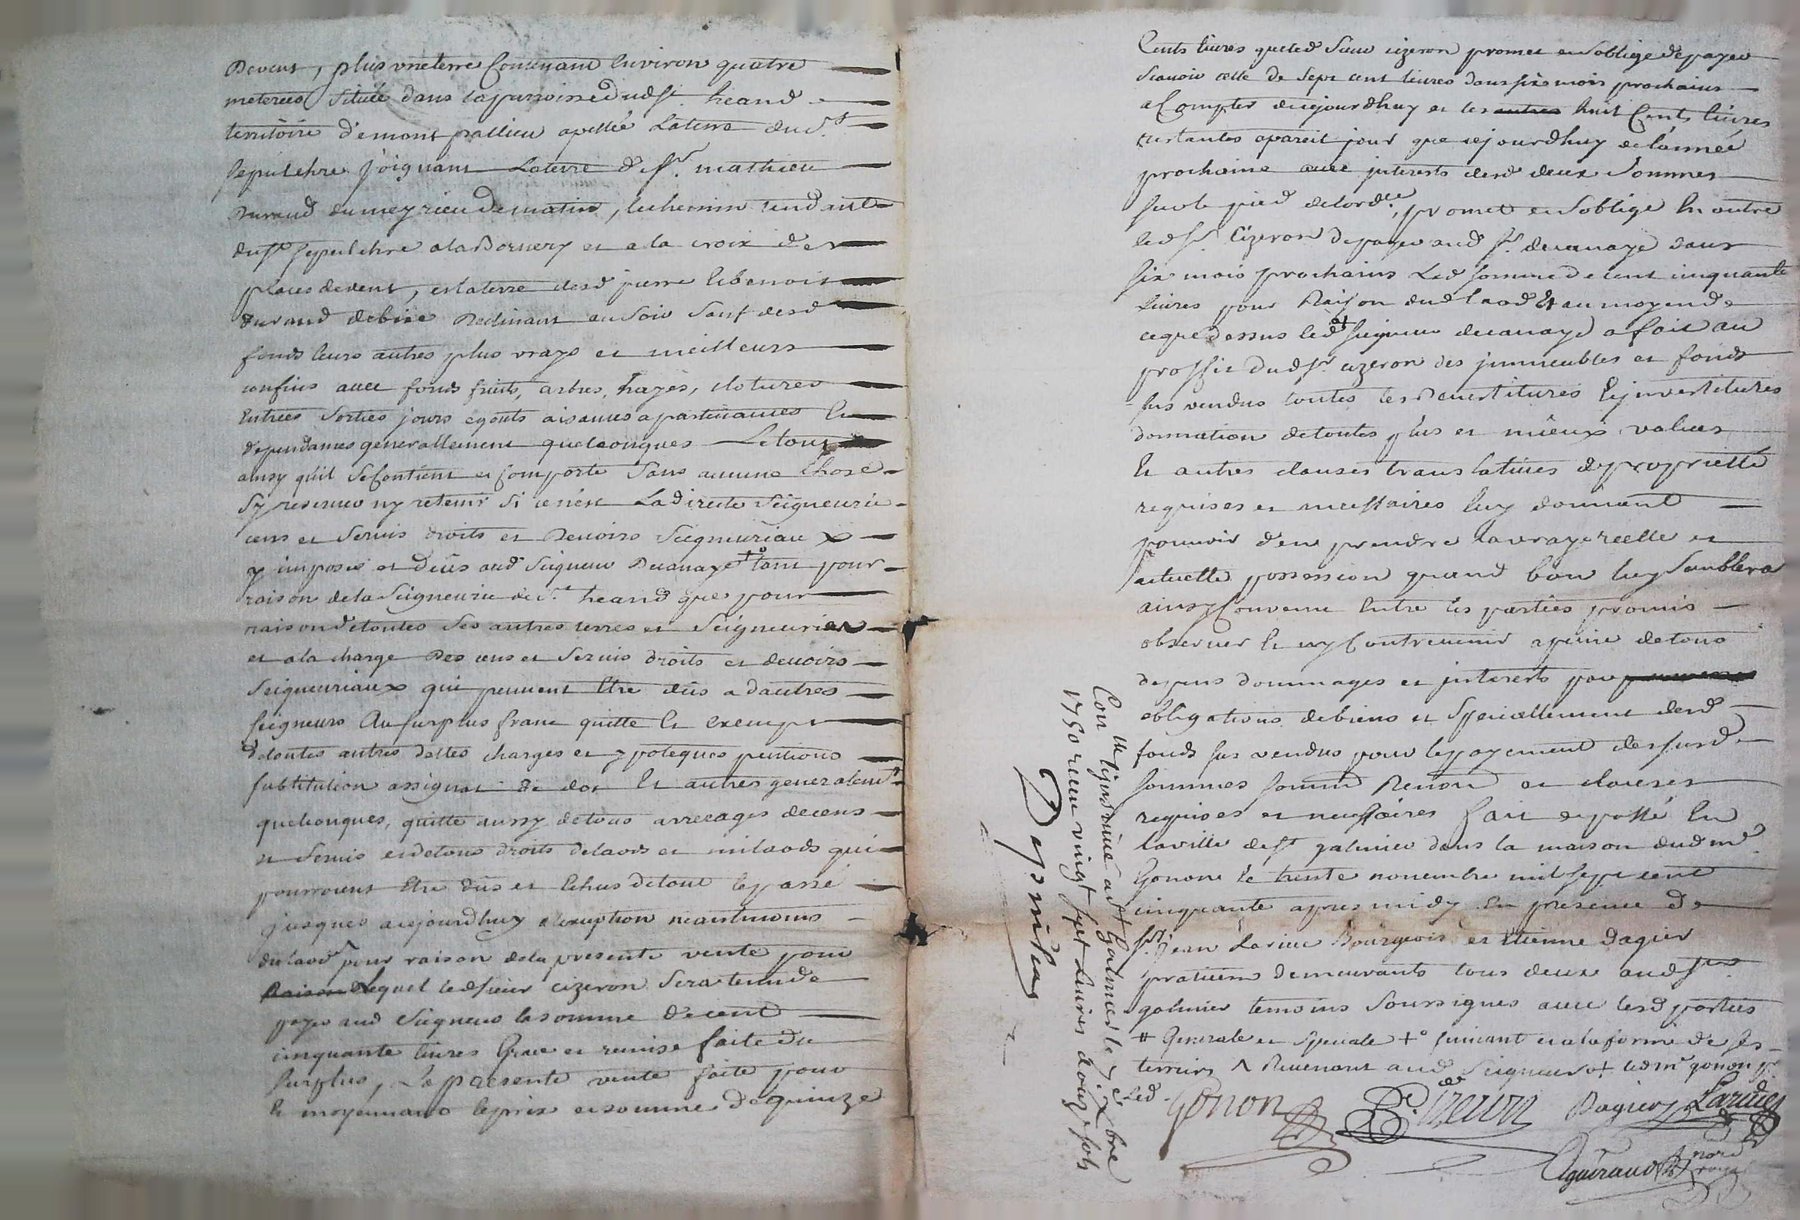 Devent, plus une terre Contenant Environ quatre
meterées Située dans la parroisse dud St. heand
territoire de mont pallieu apellée La terre du St.
Sepulchre Joignant La terre de Sr. mathieu
Durand du meyrieu de matin, le chemin tendant
du St Sepulchre a la et a la croix des
places de vent, et la terre desd pierre et benoit
durand debise Declinant au Soir Sauf desd
fonds leurs autres plus vrays et meilleurs
confins avec fonds fruits, arbres, hayes, clotures
Entrées Sorties jours égouts aisances apartenances Et
dependances generallement quelconques Le tout
ainsy quil Se Contient et Comporte Sans aucune Chose
S'y reserver ny retenir Si ce nest La directe Seigneurie
cens et Servis droits et Devoirs Seigneuriaux
y imposés et Deüs aud Seigneur Decanaye +° tant pour
raison de la Seigneurie de St. heand que pour
raison de toutes Ses autres terres et Seigneuries
et a la charge Des cens et Servis droits et devoirs
Seigneuriaux qui peuvent Etre dûs a d'autres
Seigneurs Au Surplus franc quitte Et Exempt
de toutes autres dettes charges et ypoteques pentions
Substitution assignat de dot Et autres generalemt
quelconques, quitte aussy de tous arrerages de cens
et Servis et de tous droits de laods et milaods qui
pourroient Etre dûs et Echus de tout le passé
jusques aujourdhuy Exeption neantmoins
du laod pour raison de la presente vente pour
raison lequel led Sieur cizeron Sera tenu de
payer aud Seigneur la Somme de cent
cinquante livres Grace et remise faite du
Surplus, La presente vente faite pour
Et moyennant le prix et Somme de quinze
Cents livres que led Sieur cizeron promet et Soblige de payer
Scavoir celle de Sept cent livres dans Six mois prochains
a Compter daujourdhuy et les autres huit Cents livres
restantes apareil jour que cejourdhuy de lannée
prochaine avec interests desd deux Sommes
Sur le pied de lordce, promet et Soblige En outre
led Sr. Cizeron de payer aud Sr. decanaye dans
Six mois prochains Lad Somme de cent cinquante
livres pour Raison dud laod Et au moyen de
ce que dessus led Seigneur decanaye a fait au
proffit dud Sr cizeron des jmmeubles et fonds
Sus vendus toutes les Devestitures Et jnvestitures
donnation de toutes plus et mieux values
Et autres clauses translatives de proprietté
requises et necessaires luy donnant
pouvoir d'en prendre la vraye réelle et
actuelle possession quand bon luy Semblera
ainsy Convenu Entre les parties promis
observer Et ny Contrevenir a peine de tous
depens dommages et jnterests par
obligations de biens et Speciallement desd
fonds Sus vendus pour le payement des Susd
Sommes Soumn Renon et clauses
requises et necessaires fait et passé En
la ville de St galmier dans la maison dud me
Gonon le trente novembre mil Sept cent
cinquante apres midy En presence de
Sr. jean Larieu Bourgeois et Etienne dagier
praticien demeurants tous deux aud St
galmier temoins Soussignés avec lesd parties
# Generale et Speciale +° Suivant et a la forme de Ses
terriers ^ Revenant aud Seigneur + led me gonon pr.
de
Led
Gonon
Cizeron
Dagier
Larieu
nore
royal
Con lle et jnsinué a St Galmier le 7e Xbre
1750 receu vingt sept Livres douze sols